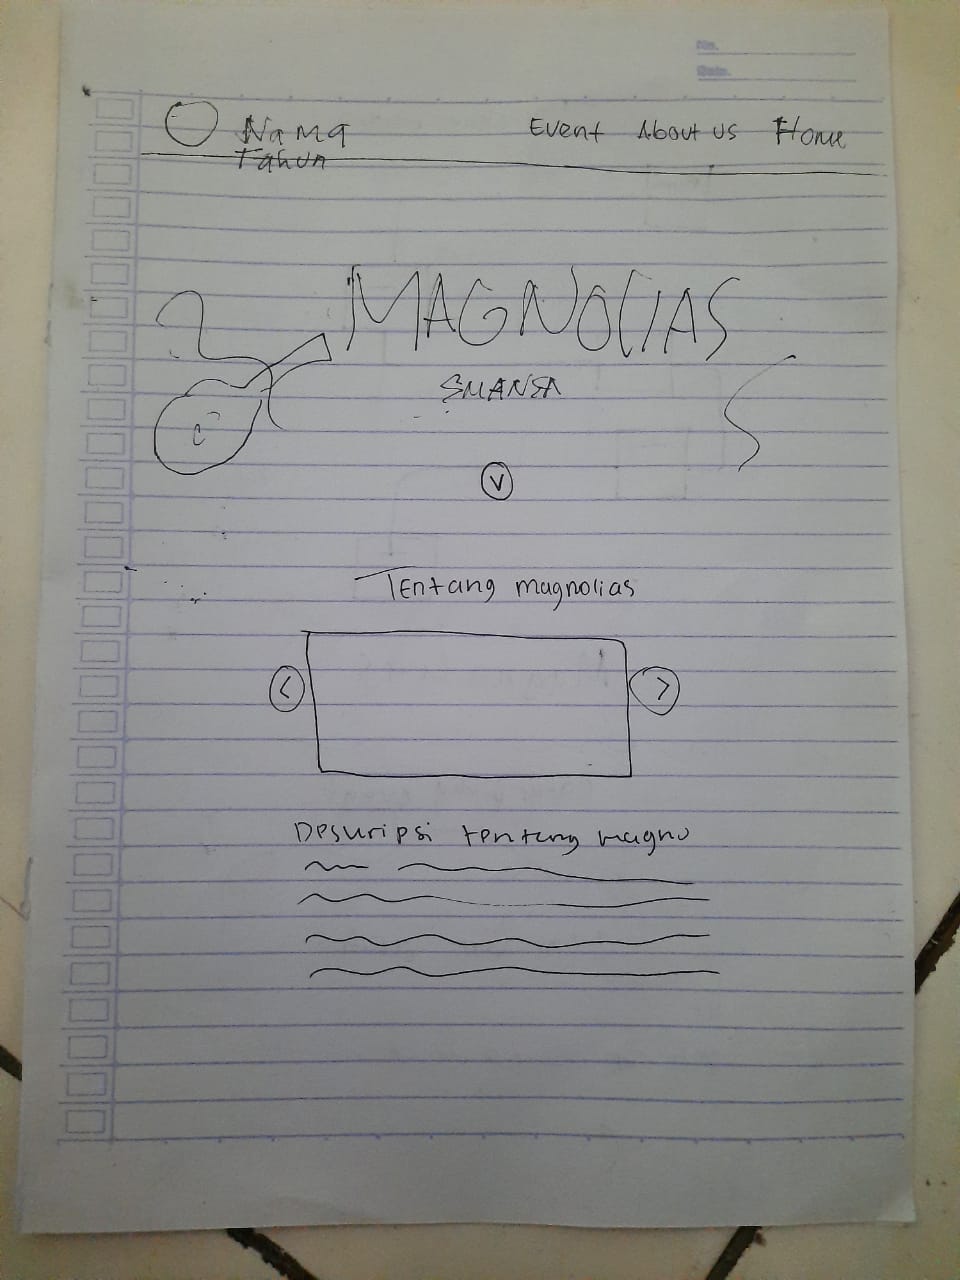 No.
Date.
Nama
Tahun
Event About us Home
MAGNOLIAS
SMANSA
V
Tentang magnolias
< >
Descripsi tentang magno